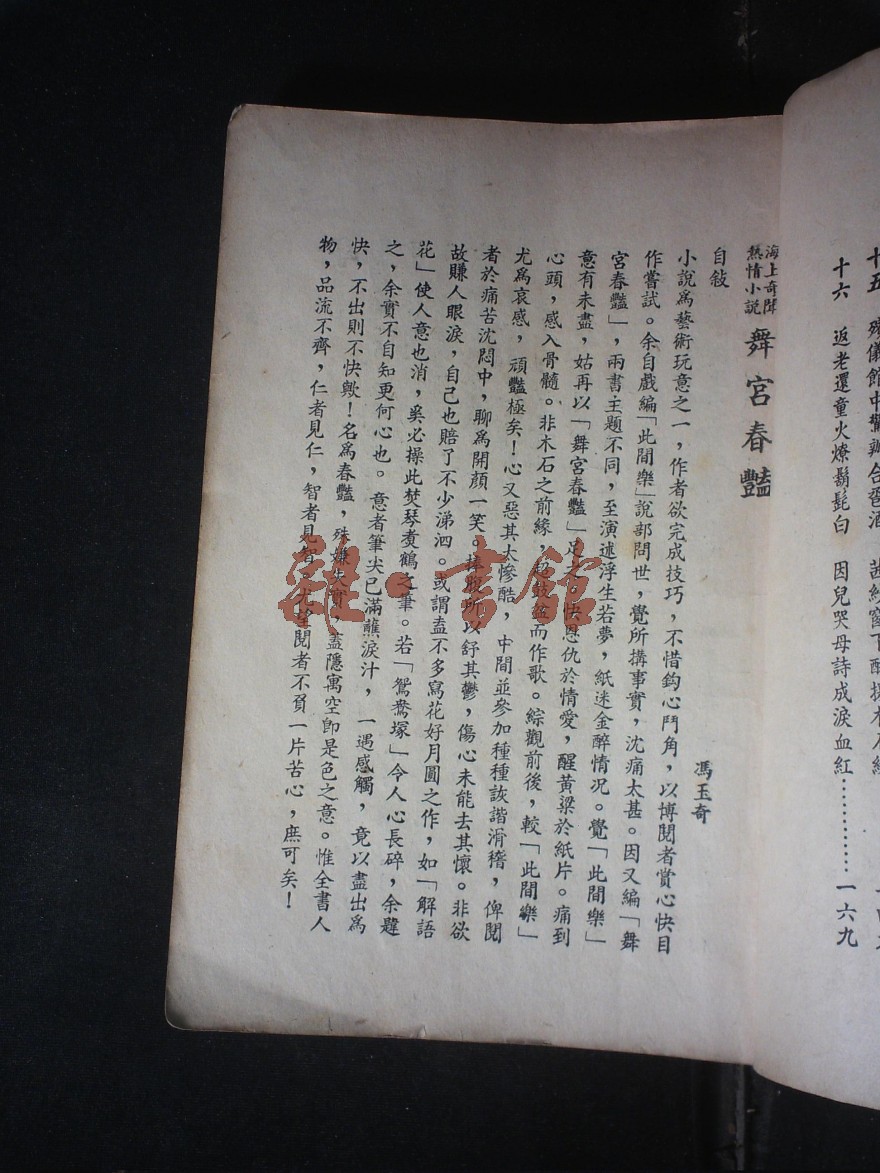 十六　返老還童火燎鬍髭白　因兒哭母詩成淚血紅…………一六九
海上奇聞
熱情小說
舞宮春豔
自敍
馮玉奇
小說爲藝術玩意之一，作者欲完成技巧，不惜鈎心鬥角，以博閱者賞心快目
作嘗試。余自戲編「此間樂」說部問世，覺所搆事實，沈痛太甚。因又編「舞
宮春豔」，兩書主題不同，至演述浮生若夢，紙迷金醉情况。覺「此間樂」
意有未盡，姑再以「舞宮春豔」足之，快恩仇於情愛，醒黃粱於紙片。痛到
心頭，感入骨髓。非木石之前緣，超鼓盆而作歌。綜觀前後，較「此間樂」
尤爲哀感，頑豔極矣！心又惡其太慘酷，中間並參加種種詼諧滑稽，俾閱
者於痛苦沈悶中，聊爲開顏一笑。捧腹所以舒其鬱，傷心未能去其懷。非欲
故賺人眼淚，自己也賠了不少涕泗。或謂盍不多寫花好月圓之作，如「解語
花」使人意也消，奚必操此焚琴煑鶴之筆。若「鴛鴦塚」令人心長碎，余韙
之，余實不自知更何心也。意者筆尖已滿蘸淚汁，一遇感觸，竟以盡出爲
快，不出則不快歟！名爲春豔，殊嫌失實，盖隱寓空卽是色之意。惟全書人
物，品流不齊，仁者見仁，智者見智，尤望閱者不負一片苦心，庶可矣！
雜·書館